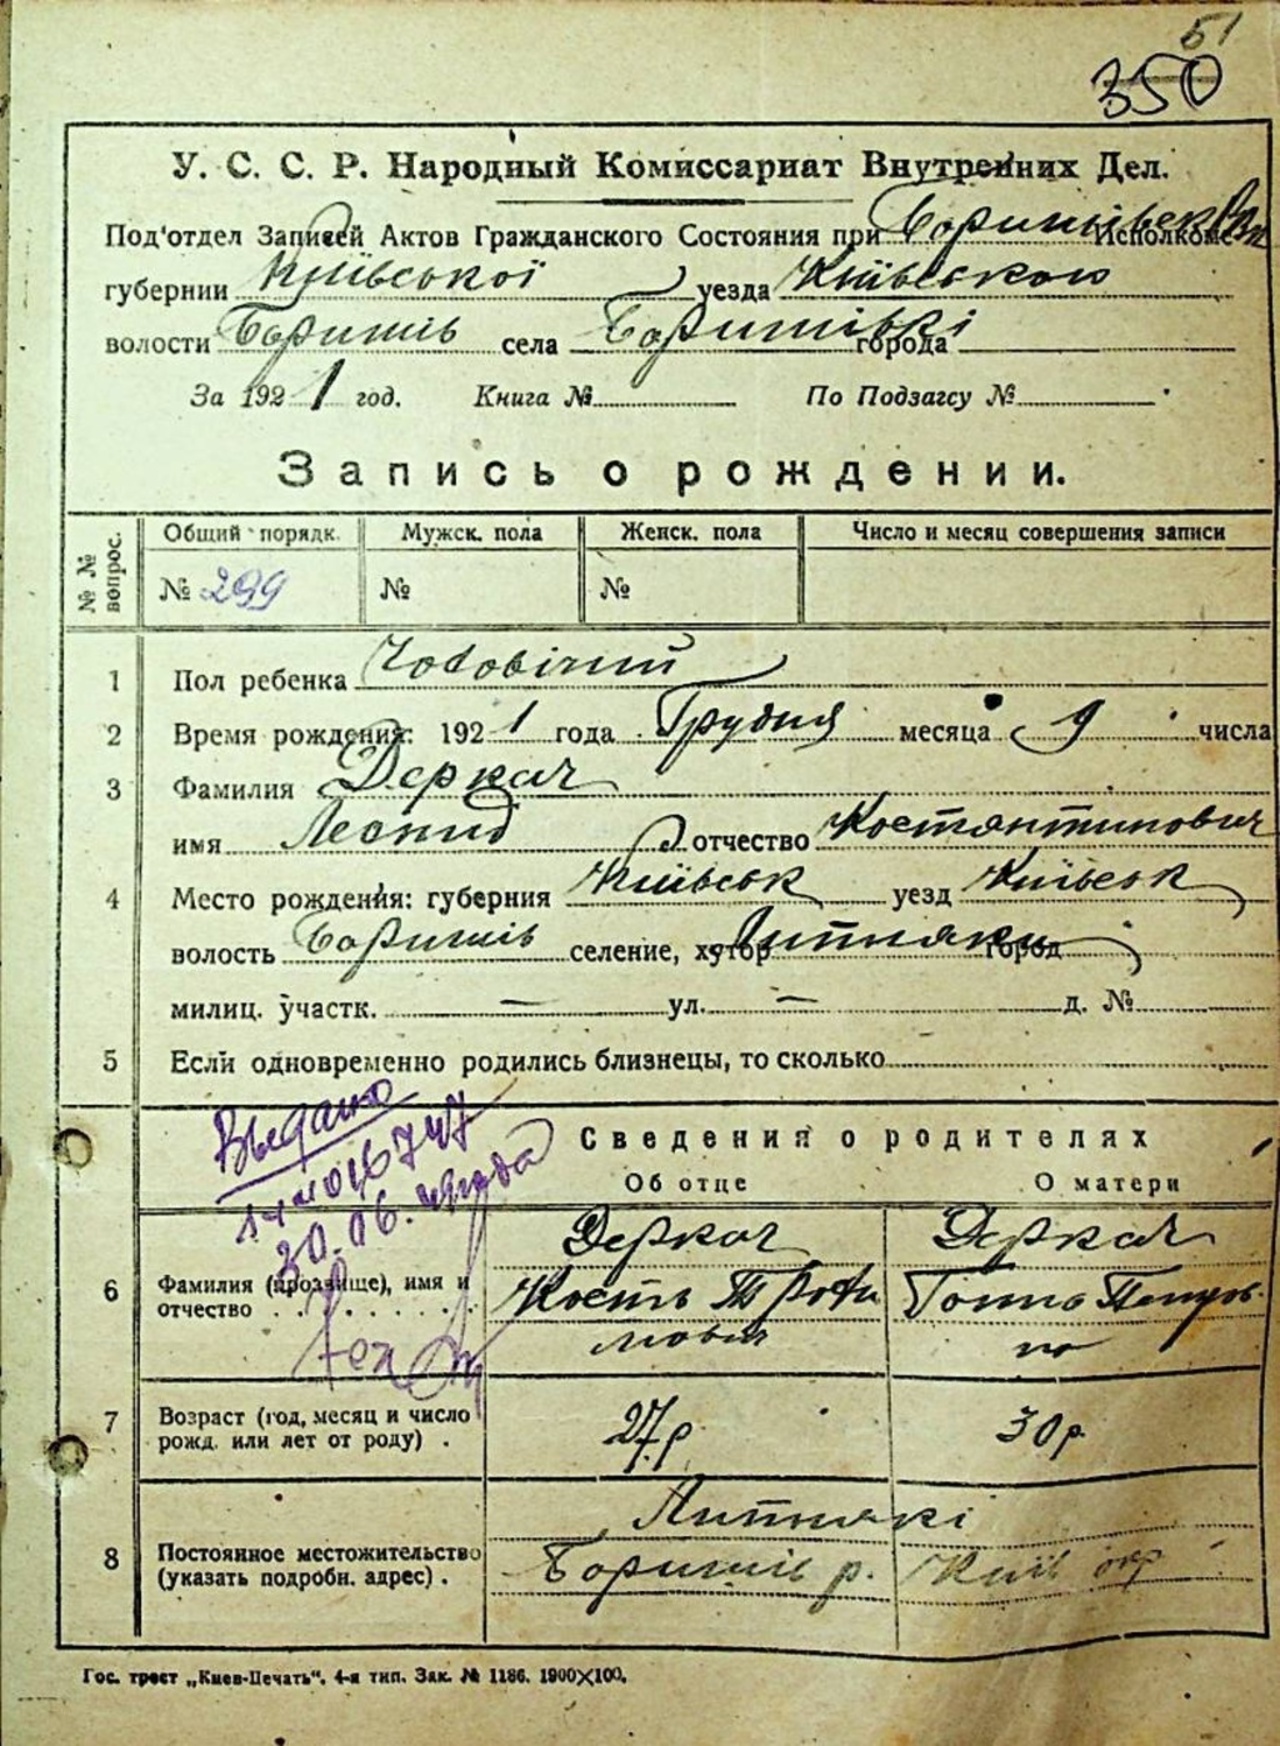 51
350
У. С. С. Р. Народный Комиссариат Внутренних Дел.
Под'отдел Записей Актов Гражданского Состояния при Боришівськ Исполкоме
губернии Київської уезда Київського
волости Боришів села Боришівкі города
За 1921 год. Книга № По Подзагсу №
Запись о рождении.
№ № вопрос. Общий порядк. Мужск. пола Женск. пола Число и месяц совершения записи
№ 299 № №
1 Пол ребенка Чоловічий
2 Время рождения: 1921 года Грудня месяца 9 числа
3 Фамилия Деркач
имя Леонид отчество Костянтинович
4 Место рождения: губерния Київськ уезд Київськ
волость Боришів селение, хутор Липняки город
милиц. участк. — ул. — д. №
5 Если одновременно родились близнецы, то сколько
Выдано
016747
30.06. года
Сведения о родителях
Об отце О матери
6 Фамилия (прозвище), имя и отчество
Деркач Деркач
Кость Трофи Ганна Петров-
мович на
7 Возраст (год, месяц и число рожд. или лет от роду) .
27 р 30 р.
8 Постоянное местожительство (указать подробн. адрес) .
Липнякі
Боришів р. Київ окр
Гос. трест „Киев-Печать“. 4-я тип. Зак. № 1186. 1900×100.